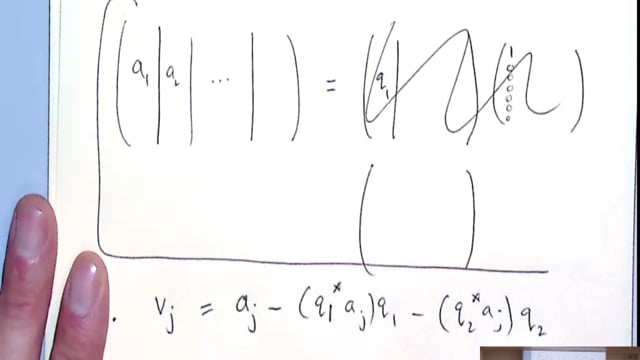 ( a₁ | a₂ | ⋯ | ) = ( q₁ | ) ( 1 0 0 0 0 0 )
( )
. vⱼ = aⱼ − (q₁* aⱼ) q₁ − (q₂* aⱼ) q₂